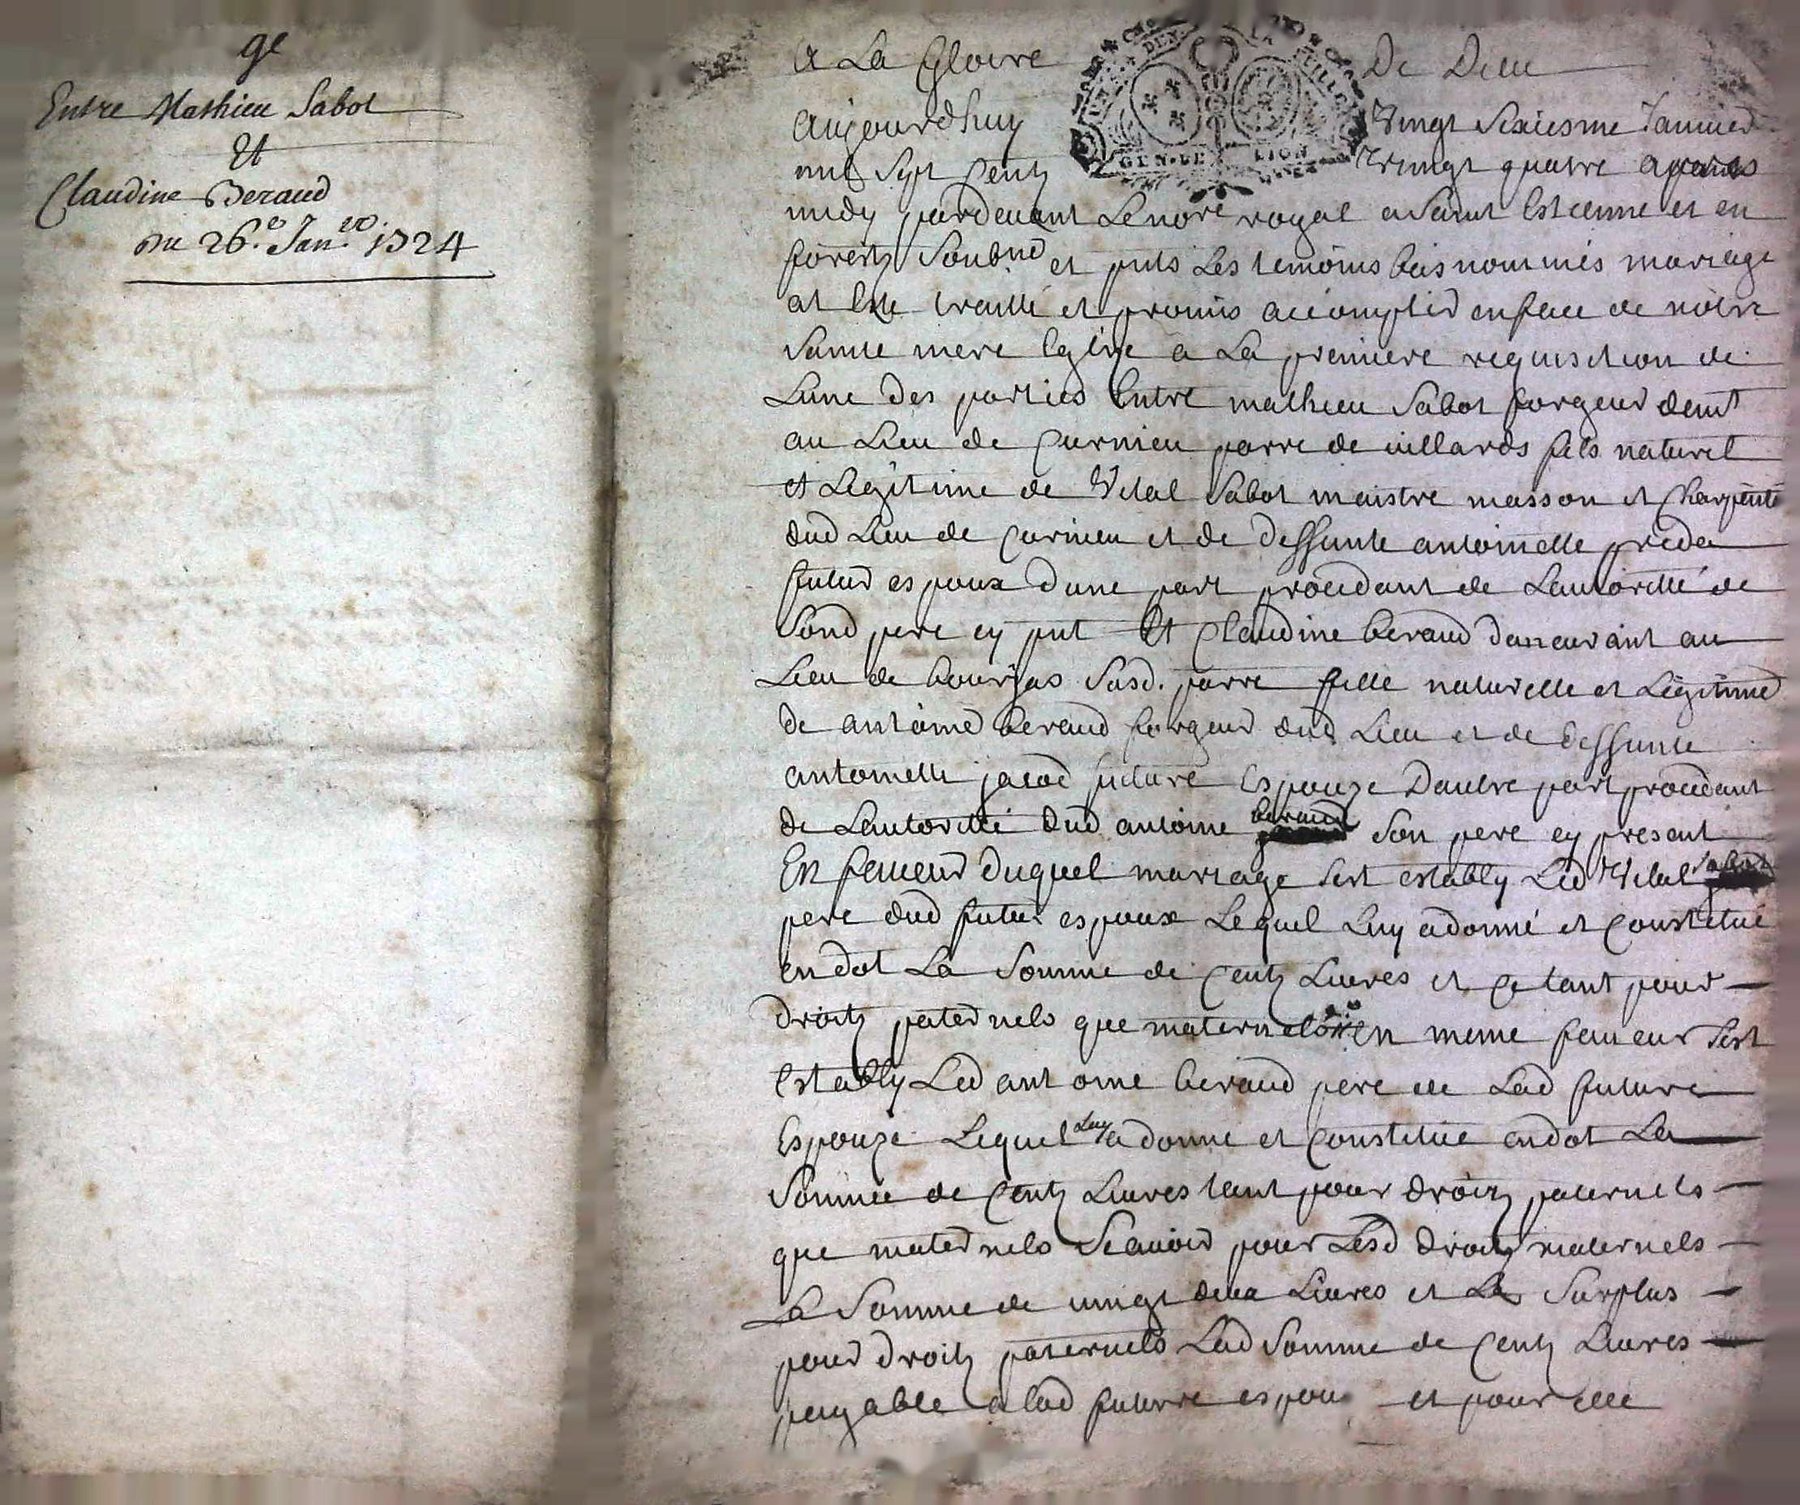 ge
Entre Mathieu Sabot
Et
Claudine Beraud
Du 26.e Jan.er 1724
A La Gloire De Dieu
Aujourdhuy Vingt Sixiesme Janvier
mil Sept Centz Vingt quatre apres
midy pardevant Le nore royal a Saint Estienne et en
forestz Soubné et pnts Les temoins bas nommés mariage
at Este traitté et promis accomplir en face de nôtre
Sainte mere Eglize a La premiere requisition de
Lune des parties Entre mathieu Sabot forgeur demt
au Lieu de Curnieu parre de villards fils naturel
et Legitime de Vital Sabot maistre masson et Charpentié
dud Lieu de Curnieu et de deffunte antoinette preda
futur espoux dune part procedant de Lautoritté de
Sond pere cy pnt Et Claudine beraud demeurant au
Lieu de bourjas Susd. parre fille naturelle et Legitime
de antoine beraud forgeur dud Lieu et de deffunte
antoinette jacod future Espouze Dautre part procedant
de Lautoritté dud antoine beraud Son pere cy present
En faveur duquel mariage Sest estably Led Vital Sabot
pere dud futur espoux Lequel Luy a donné et Constitué
en dot La Somme de Centz Livres et ce tant pour
droitz paternels que maternels en meme faveur Sest
Estably Led antoine beraud pere de Lad future
Espouze Lequel Luy a donné et Constitué en dot La
Somme de Centz Livres tant pour droitz paternels
que maternels Scavoir pour Lesd droitz maternels
La Somme de vingt deux Livres et Le Surplus
pour droitz paternels Lad Somme de Centz Livres
payable a lad future espou et pour elle